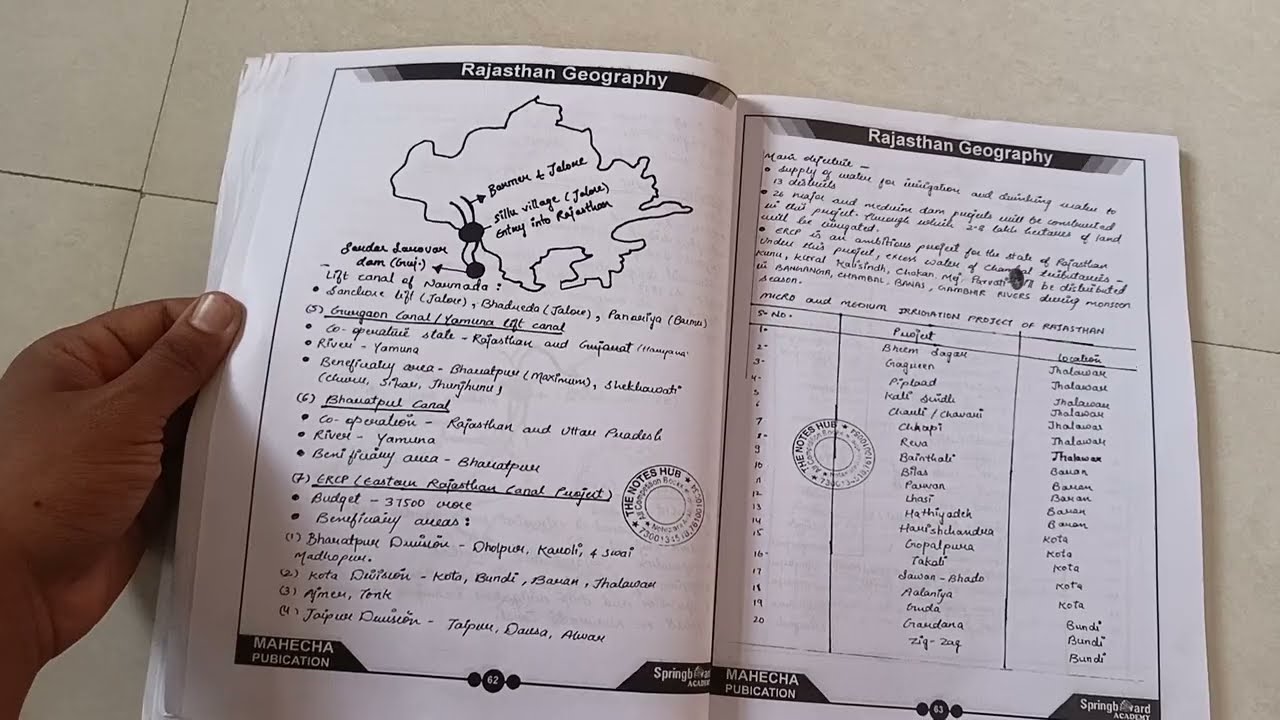 Rajasthan Geography
Barmer & Jalore
Sillu village (Jalore)
Entry into Rajasthan
Sardar Sarovar
dam (Guj.)
Lift canal of Narmada:
• Sanchore lift (Jalore), Bhadreda (Jalore), Panoriya (Barmer)
(5) Gurgaon Canal/Yamuna lift canal
• Co-operative state - Rajasthan and Gujarat (Haryana)
• River - Yamuna
• Beneficiary area - Bharatpur (Maximum), Shekhawati
(Churu, Sikar, Jhunjhunu)
(6) Bharatpur Canal
• Co-operation - Rajasthan and Uttar Pradesh
• River - Yamuna
• Benificiary area - Bharatpur
(7) ERCP (Eastern Rajasthan Canal Project)
• Budget - 37500 crore
• Beneficiary areas:
(1) Bharatpur Division - Dholpur, Karoli, & Swai
Madhopur.
(2) Kota Division - Kota, Bundi, Baran, Jhalawar
(3) Ajmer, Tonk
(4) Jaipur Division - Jaipur, Dausa, Alwar
THE NOTES HUB
MAHECHA
PUBICATION
62
Springboard
ACADEMY
Rajasthan Geography
Main objective -
• Supply of water for irrigation and drinking water to
13 districts
• 26 major and medium dam projects will be constructed
in this project. Through which 2.8 lakh hectares of land
will be irrigated.
• ERCP is an ambitious project for the state of Rajasthan
Under this project, excess water of Chambal tributaries -
Kunu, Kural Kalisindh, Chakan, Mej, Parvati will be distributed
in BANGANGA, CHAMBAL, BANAS, GAMBHIR RIVERS during monsoon
season.
MICRO and MEDIUM IRRIGATION PROJECT OF RAJASTHAN
S. NO. Project Location
1- Bheem Sagar Jhalawar
2- Gagreen Jhalawar
3- Piplaad Jhalawar
4- Kali Sindh Jhalawar
5 Chauli / Chavari Jhalawar
6 Chhapi Jhalawar
7 Reva Jhalawar
8- Bainthali Baran
9 Bilas Baran
10 Parwan Baran
11 Lhasi Baran
12 Hathiyadeh Kota
13 Harishchandra Kota
14 Gopalpura Kota
15 Takali Kota
16- Sawan-Bhado Kota
17 Aalaniya
18 Guda Bundi
19 Gardana Bundi
20 Zig-Zag Bundi
THE NOTES HUB
MAHECHA
PUBICATION
63
Springboard
ACADEMY